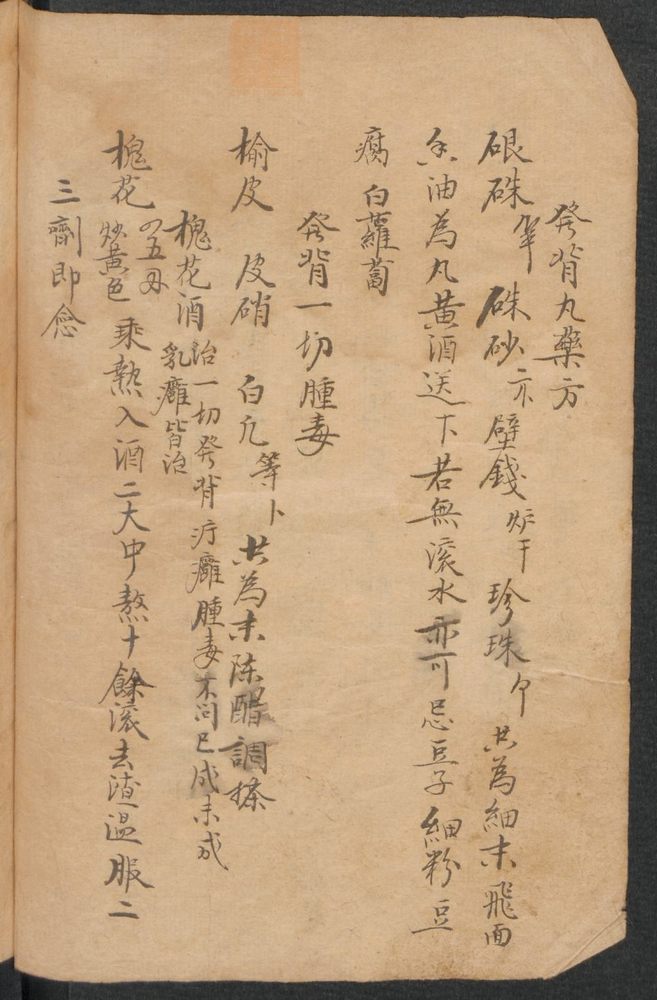 發背丸藥方
硍硃 硃砂 壁錢 炉干 珍珠 共為細末飛面
香油為丸黃酒送下若無滚水亦可忌豆子細粉豆
腐 白蘿蔔
發背一切腫毒
榆皮 皮硝 白凡 等卜 共為末陈醋調搽
槐花酒 治一切癸背疔癰腫毒不问已成未成
乳癰皆治
槐花 四五母 炒黃色 乘熱入酒二大中熬十餘滚去渣温服二
三劑即愈